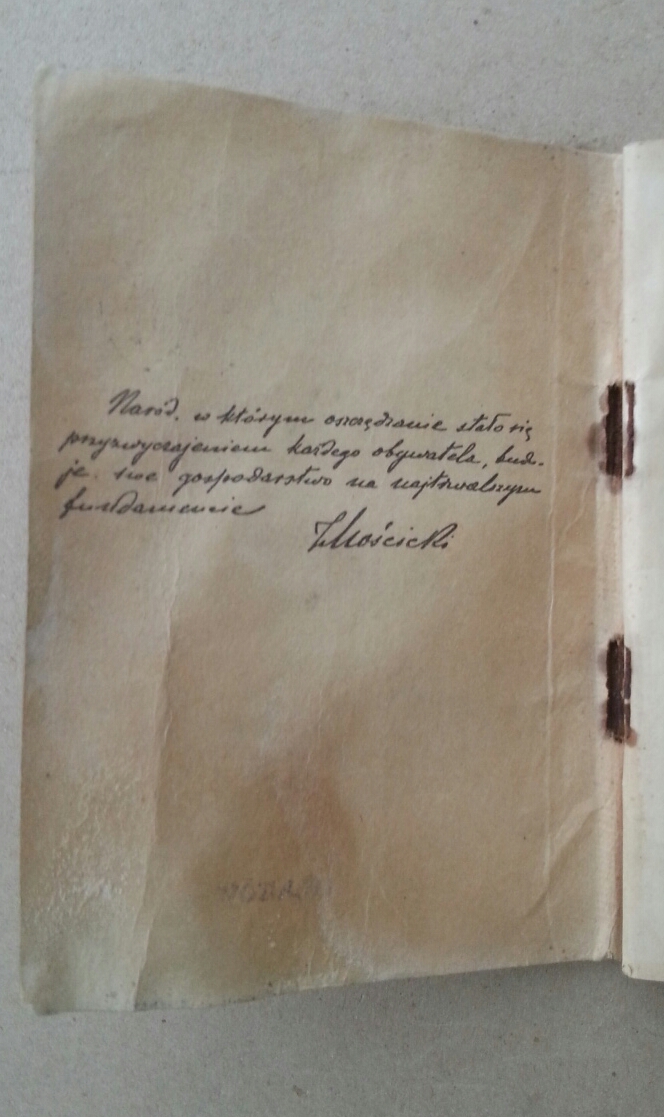 Naród, w którym oszczędzanie stało się
przyzwyczajeniem każdego obywatela, budu-
je swe gospodarstwo na najtrwalszym
fundamencie
IMościcki